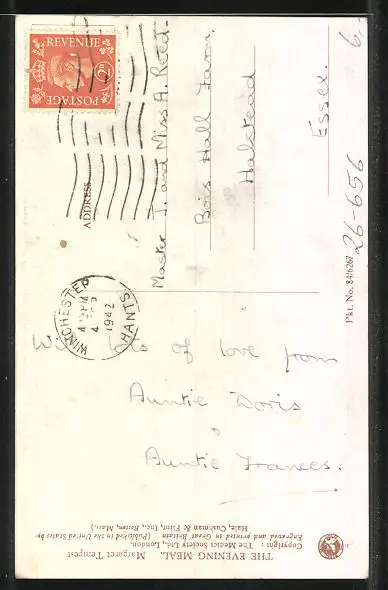 REVENUE
2D
POSTAGE
ADDRESS
Master J. and Miss A. Reed.
Bois Hall Farm,
Halstead
Essex.
6
26-656
Pkt. No. 84/6267
WINCHESTER
4 PM
4
1942
HANTS
of love from
Auntie Doris
Auntie Frances.
THE EVENING MEAL. Margaret Tempest
Copyright : The Medici Society Ltd., London.
Engraved and printed in Great Britain (Published in the United States by
Hale, Cushman & Flint, Inc., Boston, Mass.)